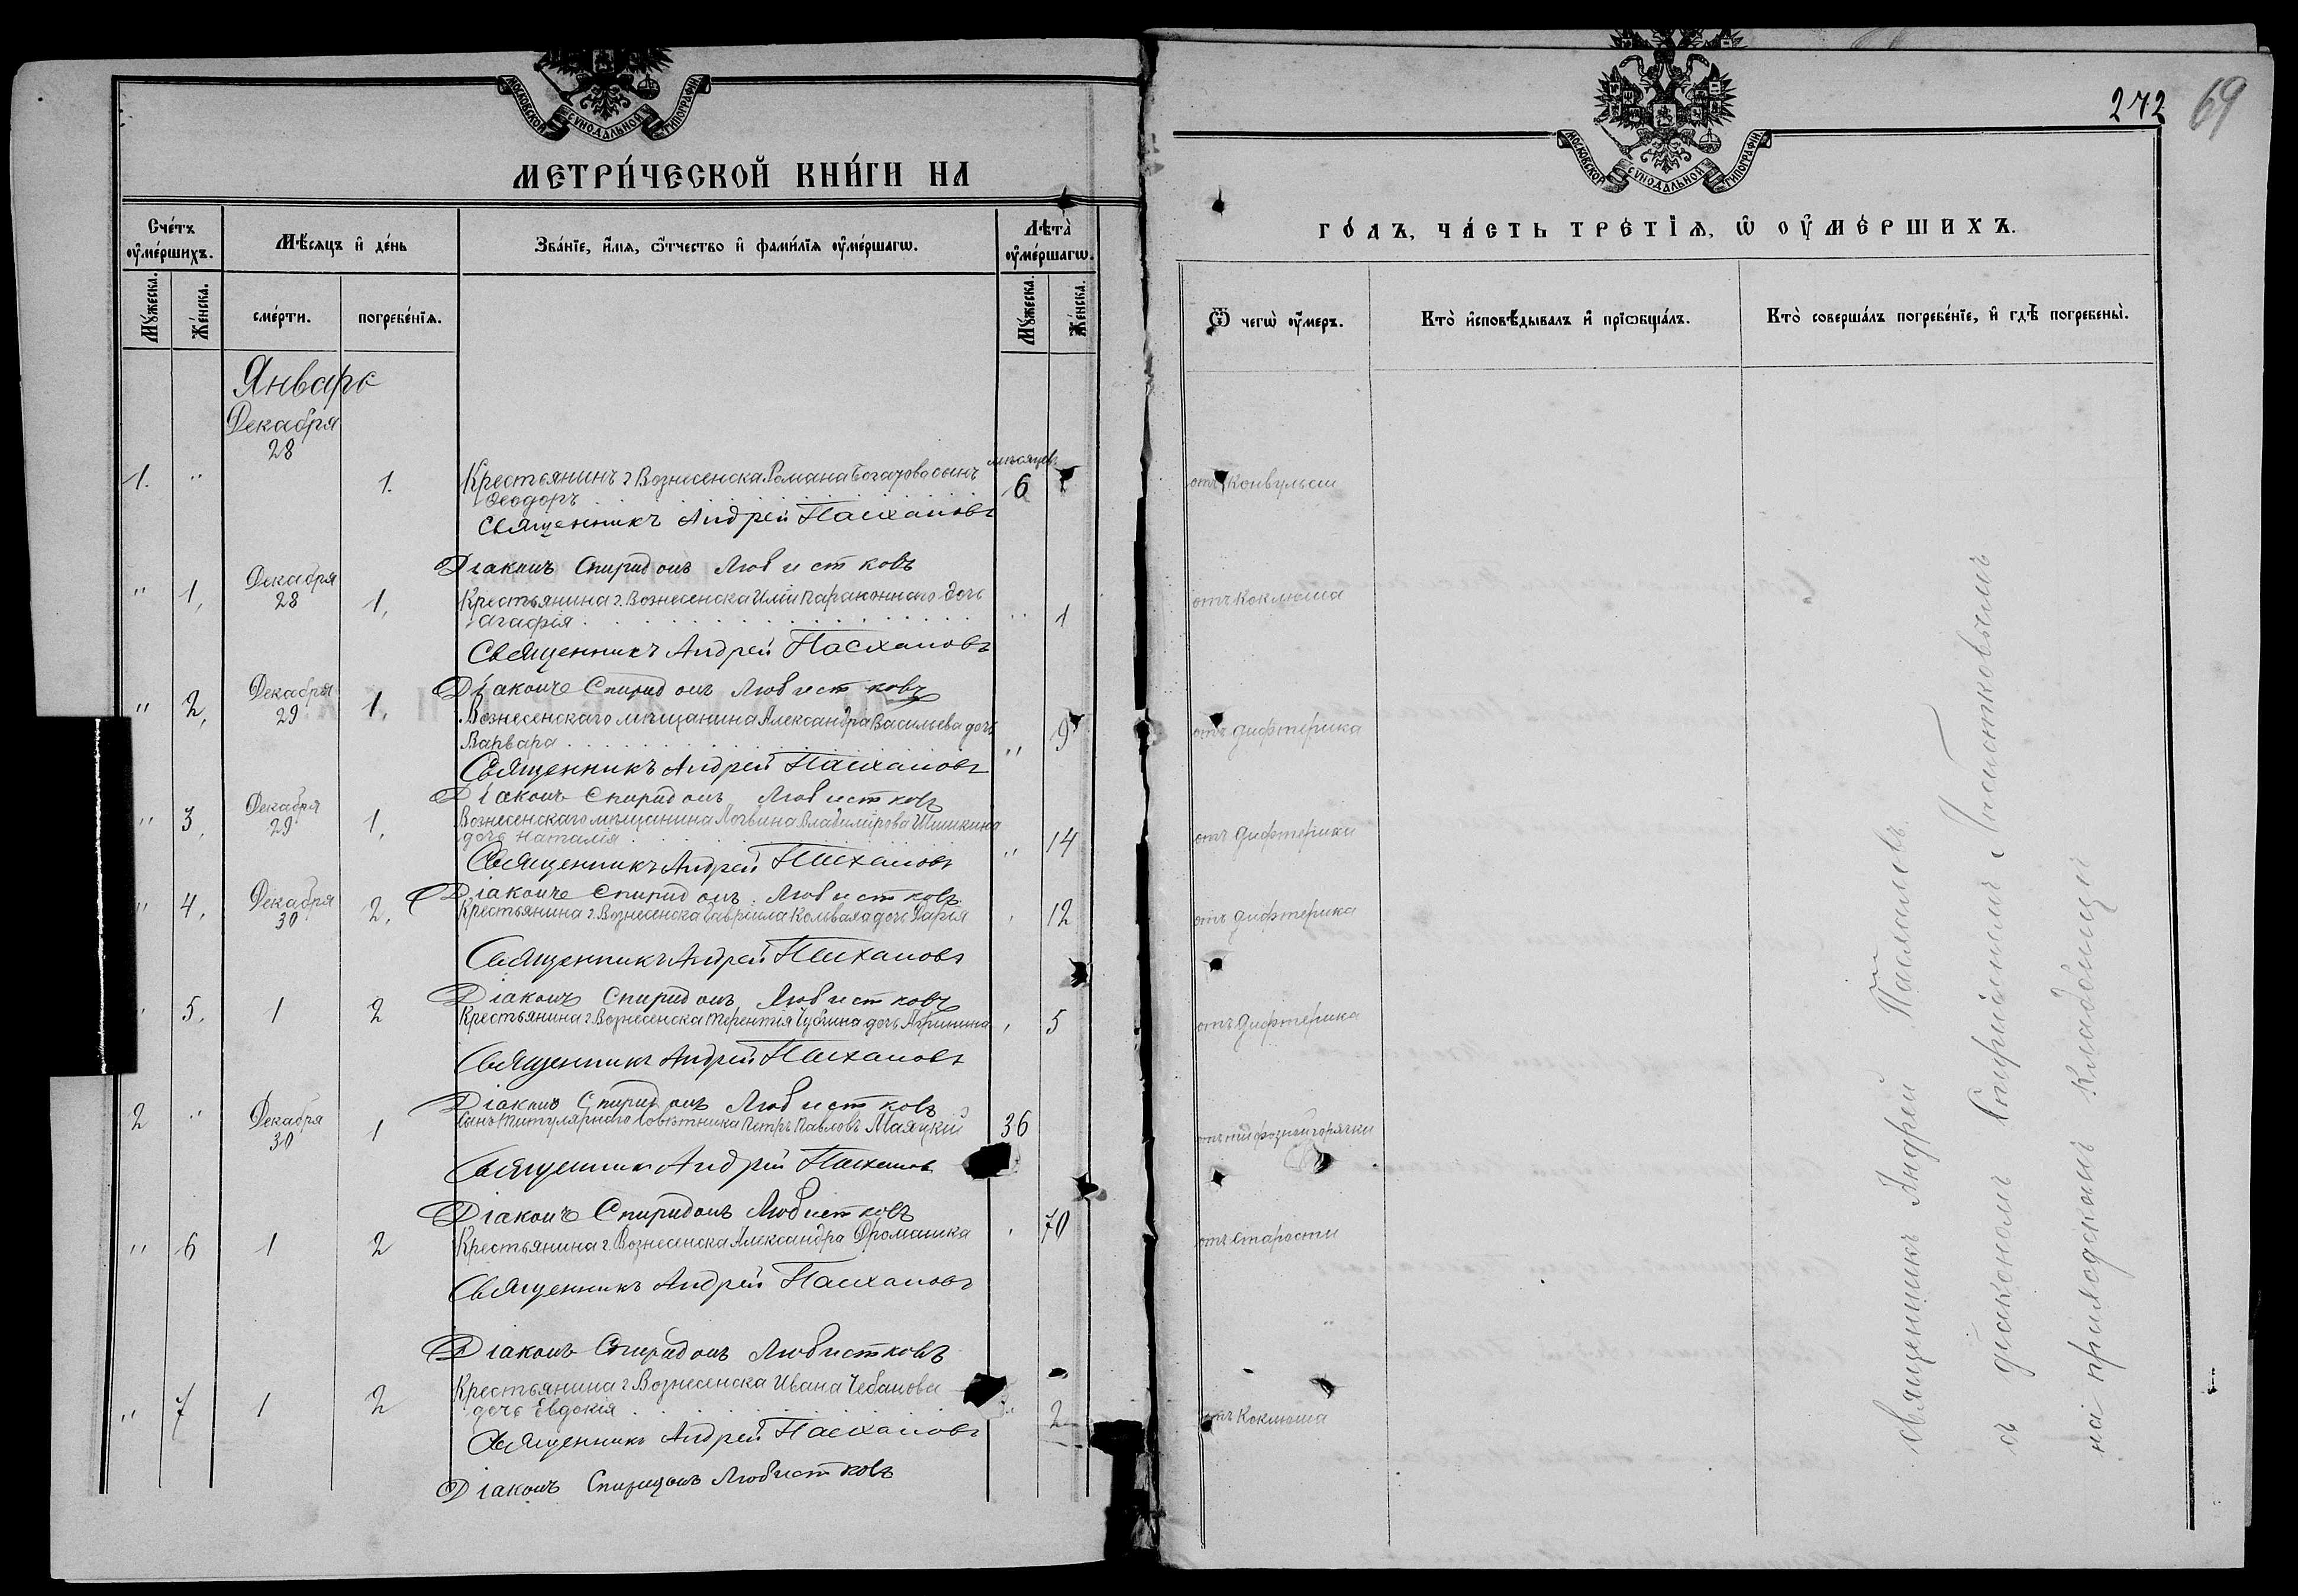 МОСКОВСКОЙ СѴНОДАЛЬНОЙ ТИПОГРАФІИ
МЕТРИ́ЧЕСКОЙ КНИ́ГИ НА
Сче́тъ оу҆ме́ршихъ.
Мѣ́сяцъ и҆ де́нь
Зва́нїе, и҆́мѧ, ѻ҆́тчество и҆ фами́лїѧ оу҆ме́ршагѡ.
Лѣта̀ оу҆ме́ршагѡ.
Му́жеска.
Же́нска.
сме́рти.
погребе́нїѧ.
Му́жеска.
Же́нска.
Январь
Декабря
28
1. " 1. Крестьянинъ г Вознесенска Романа Богачова сынъ мѣсяцев.
Ѳеодоръ 6
Священникъ Андрей Пасхаловъ
Діаконъ Спиридонъ Любистковъ
" 1, Декабря 28 1, Крестьянина г. Вознесенска Иліи Параконнаго дочь
Агафія " 1
Священникъ Андрей Пасхаловъ
Діаконъ Спиридонъ Любистковъ
" 2, Декабря 29 1, Вознесенскаго мѣщанина Александра Васильева дочь
Варвара " 9
Священникъ Андрей Пасхаловъ
Діаконъ Спиридонъ Любистковъ
" 3, Декабря 29 1, Вознесенскаго мѣщанина Логвина Владимірова Шишкина
дочь Наталія " 14
Священникъ Андрей Пасхаловъ
Діаконъ Спиридонъ Любистковъ
" 4, Декабря 30 2, Крестьянина г. Вознесенска Гавріила дочь Дарія " 12
Священникъ Андрей Пасхаловъ
Діаконъ Спиридонъ Любистковъ
" 5, 1 2 Крестьянина г. Вознесенска Терентія дочь " 5
Священникъ Андрей Пасхаловъ
Діаконъ Спиридонъ Любистковъ
2 " Декабря 30 1 Сынъ Титулярнаго Совѣтника Петръ Павловъ Маяцкій 36
Священникъ Андрей Пасхаловъ
Діаконъ Спиридонъ Любистковъ
" 6 1 2 Крестьянина г. Вознесенска Александра " 70
Священникъ Андрей Пасхаловъ
Діаконъ Спиридонъ Любистковъ
" 7 1 2 Крестьянина г. Вознесенска Ивана Чебанова
дочь Евдокія 2
Священникъ Андрей Пасхаловъ
Діаконъ Спиридонъ Любистковъ
272 69
МОСКОВСКОЙ СѴНОДАЛЬНОЙ ТИПОГРАФІИ
ГО́ДЪ, ЧА́СТЬ ТРЕ́ТЇѦ, Ѡ҆ ОУ҆МЕ́РШИХЪ.
Ѿ чегѡ̀ оу҆́меръ.
Кто̀ и҆сповѣ́дывалъ и҆ прїѡбща́лъ.
Кто̀ соверша́лъ погребе́нїе, и҆ гдѣ̀ погребены̀.
отъ Конвульсіи
отъ Коклюша
отъ дифтерика
отъ дифтерика
отъ дифтерика
отъ дифтерика
отъ тифозной горячки
отъ старости
отъ Коклюша
Священникъ Андрей Пасхаловъ
съ діакономъ Спиридономъ Любистковымъ
на приходскомъ кладбищѣ